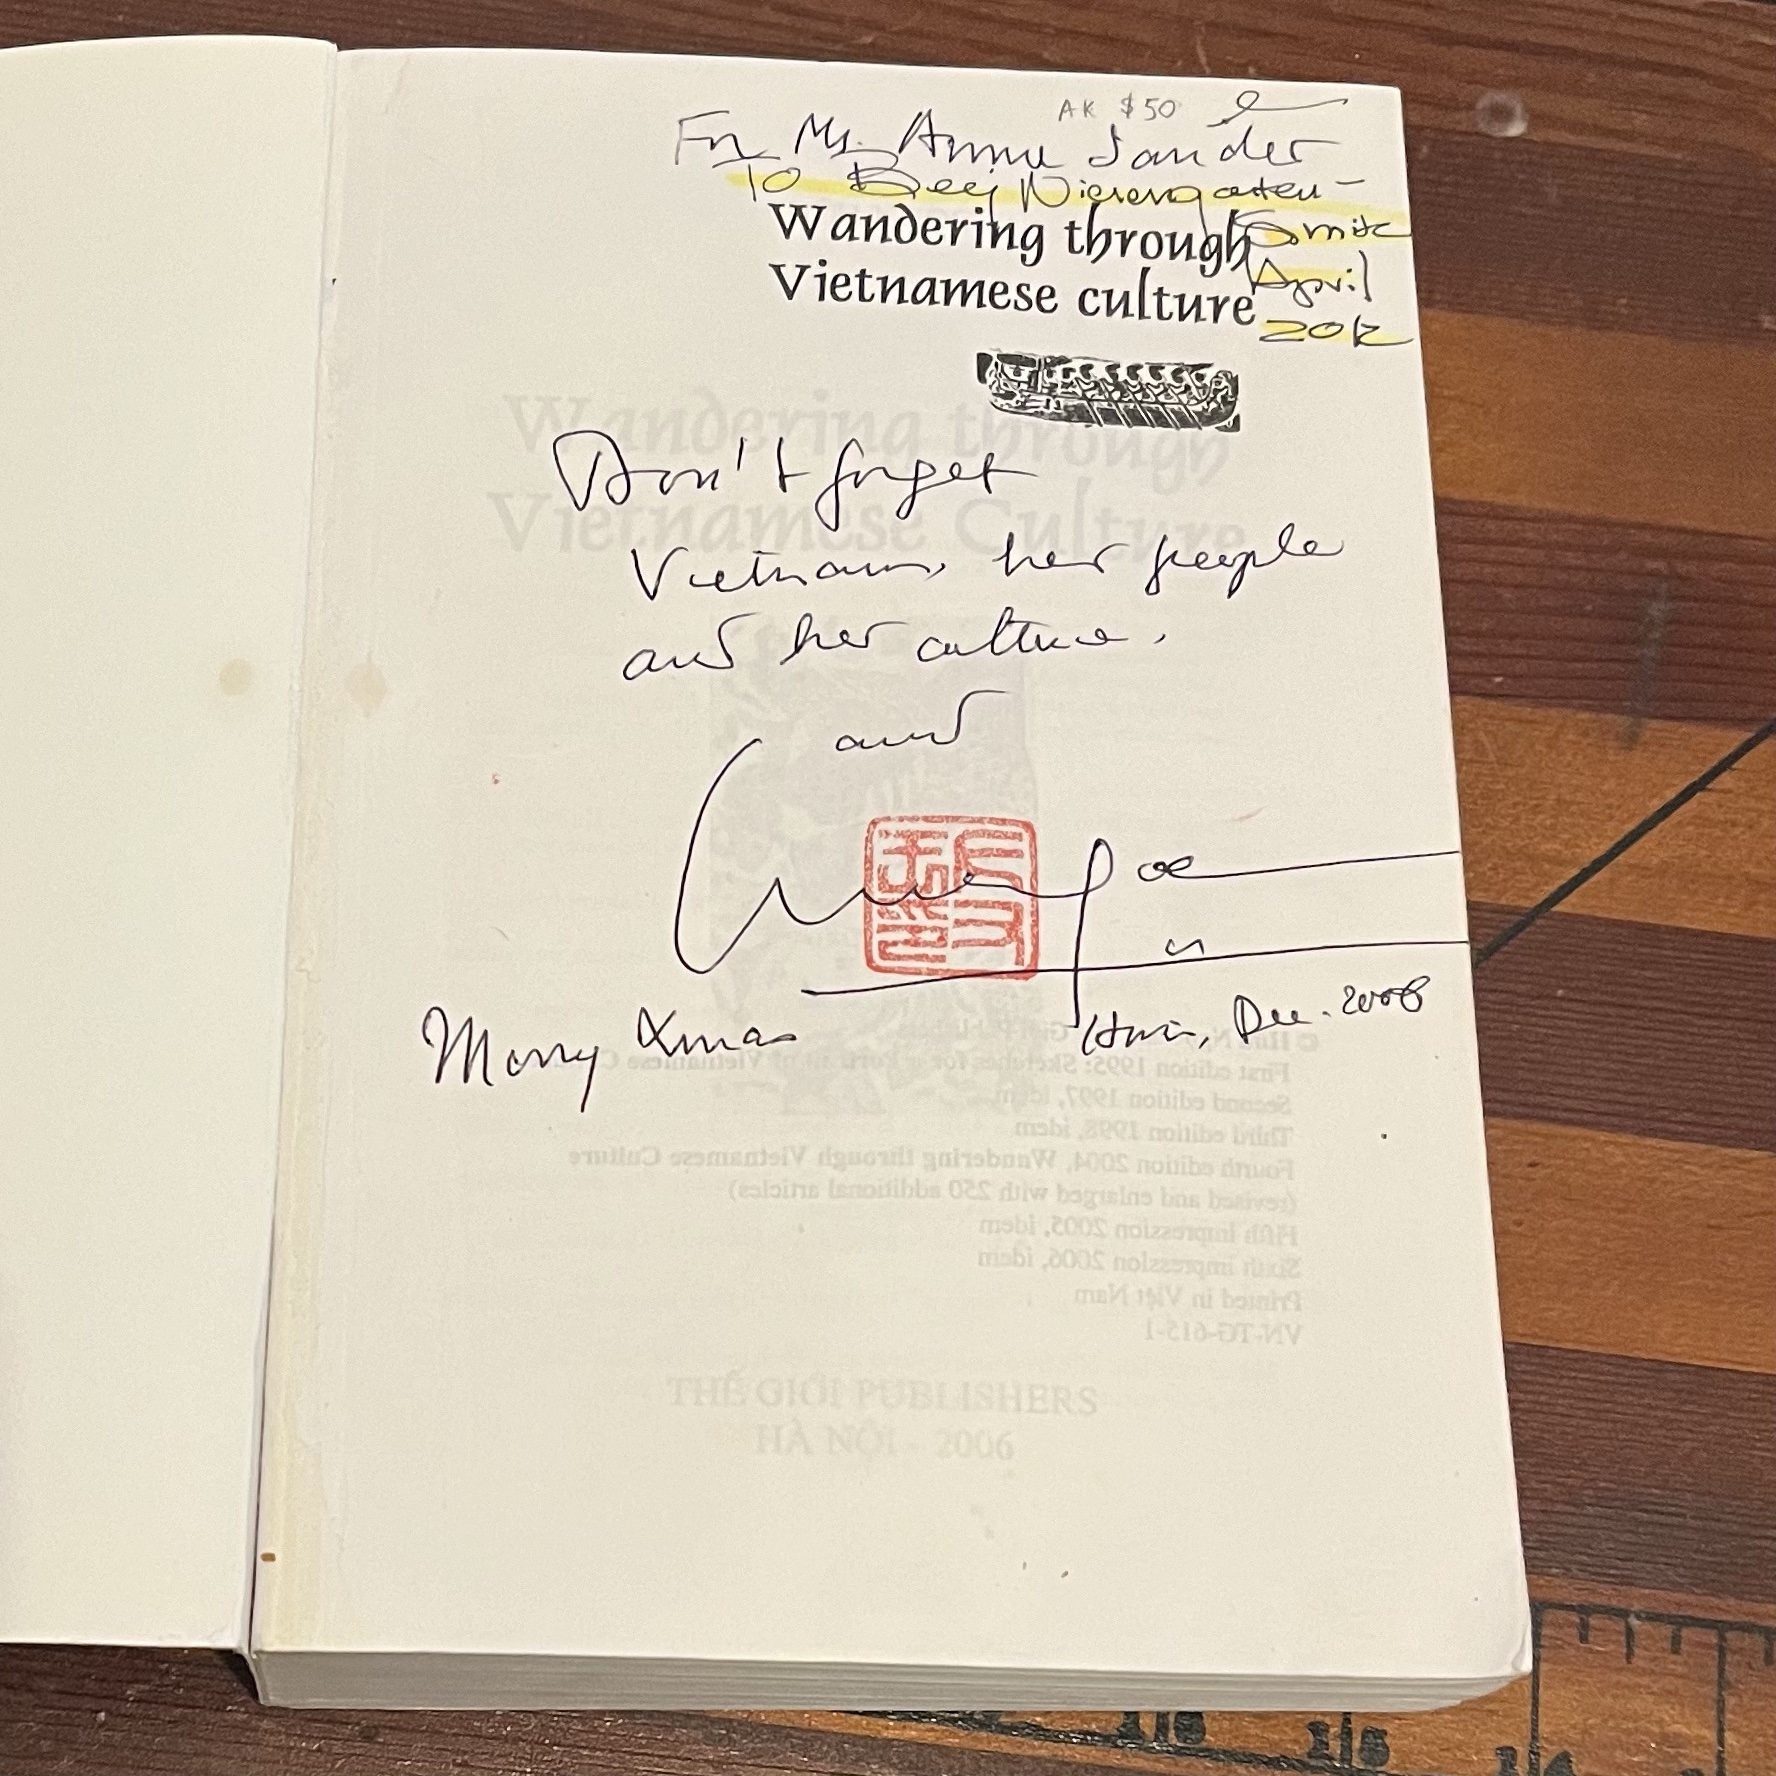 AK $50
For Ms. Anne Sander
To Beej Nierengarten-
Smith
April
2012
Wandering through
Vietnamese culture
Don't forget
Vietnam, her people
and her culture.
and
Merry Xmas
Dec. 2008
Wandering through
Vietnamese Culture
First edition 1995: Sketches for a Portrait of Vietnamese Culture
Second edition 1997, idem
Third edition 1998, idem
Fourth edition 2004, Wandering through Vietnamese Culture
(revised and enlarged with 250 additional articles)
Fifth impression 2005, idem
Sixth impression 2006, idem
Printed in Việt Nam
VN-TG-615-1
THẾ GIỚI PUBLISHERS
HÀ NỘI - 2006